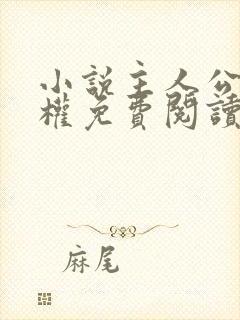 小說主人公
權免費閱讀
麻尾